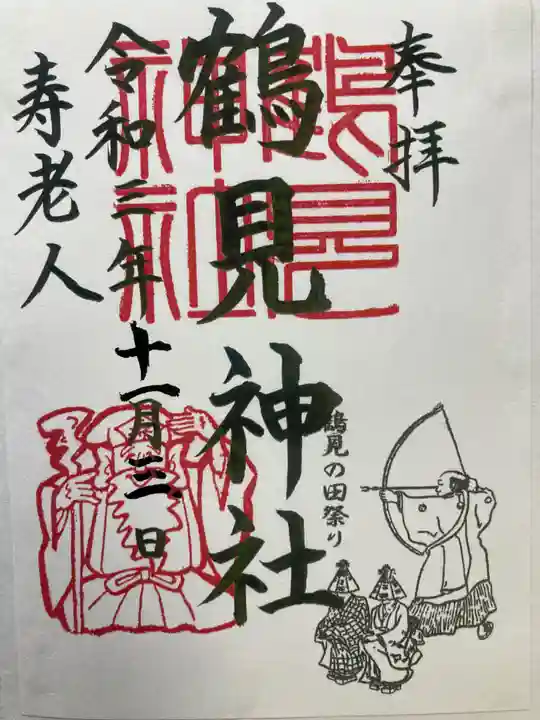 奉拝
鶴見神社
鶴見神社
令和三年十一月三日
寿老人
鶴見の田祭り